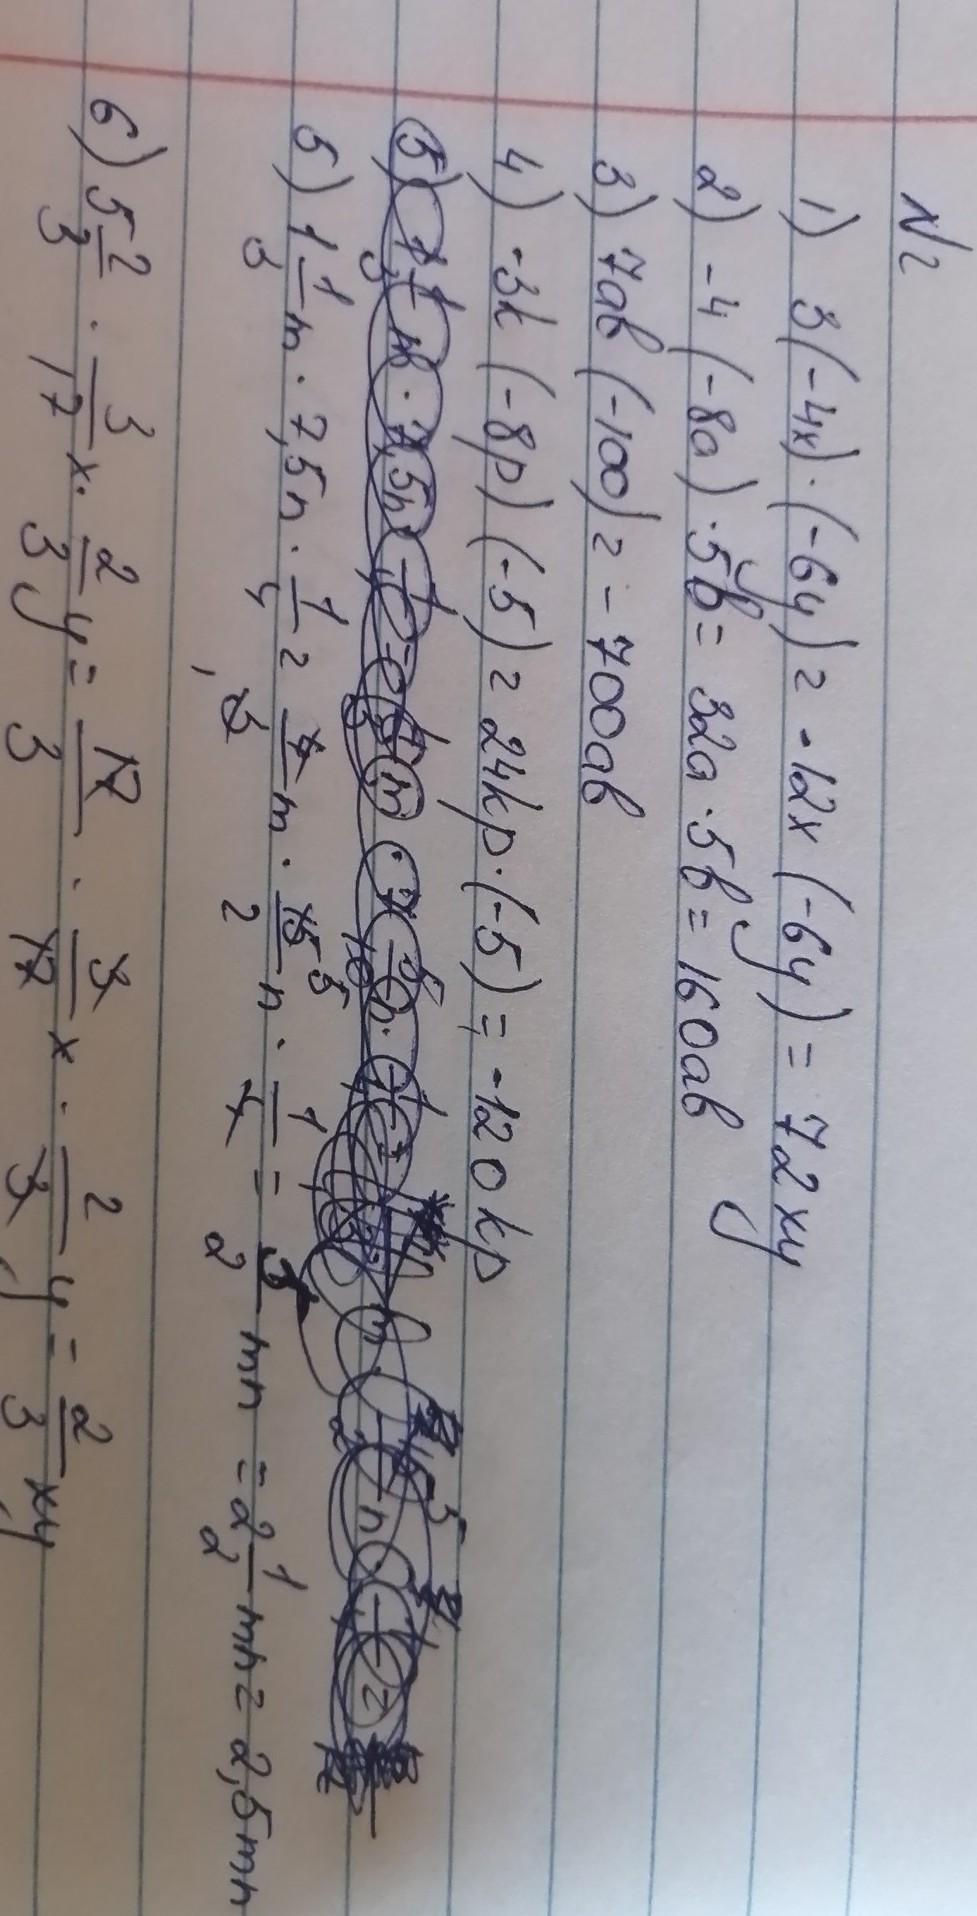 №2
1) 3(-4x)·(-6y) = -12x(-6y) = 72xy
2) -4(-8a)·5b = 32a·5b = 160ab
3) 7ab(-100) = -700ab
4) -3k(-8p)(-5) = 24kp·(-5) = -120kp
5) 1 1/3 m · 7,5n · 1/4 = 4/3 m · 15/2 n · 1/4 = 5/2 mn = 2 1/2 mn = 2,5mn
6) 5 2/3 · 3/17 x · 2/3 y = 17/3 · 3/17 x · 2/3 y = 2/3 xy